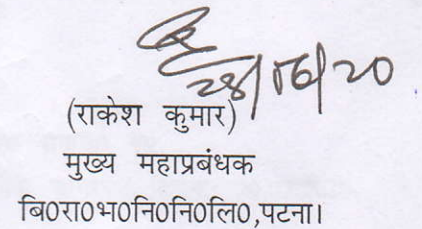 28/06/20
(राकेश कुमार)
मुख्य महाप्रबंधक
बि0रा0भ0नि0नि0लि0,पटना।